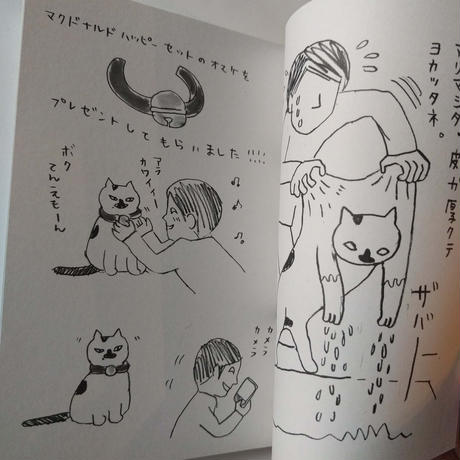 マクドナルド ハッピーセットのオマケを
プレゼントしてもらいました!!!!
アラ
カワイイー
ボク
てんえもーん
カメラ
カメラ
マリマシタ。皮が厚クテ
ヨカッタネ。
ザバーッ